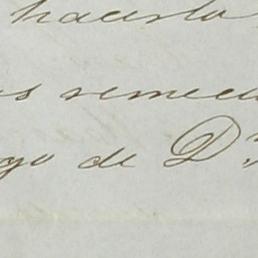 hacerlo
os remedi
go de D.n